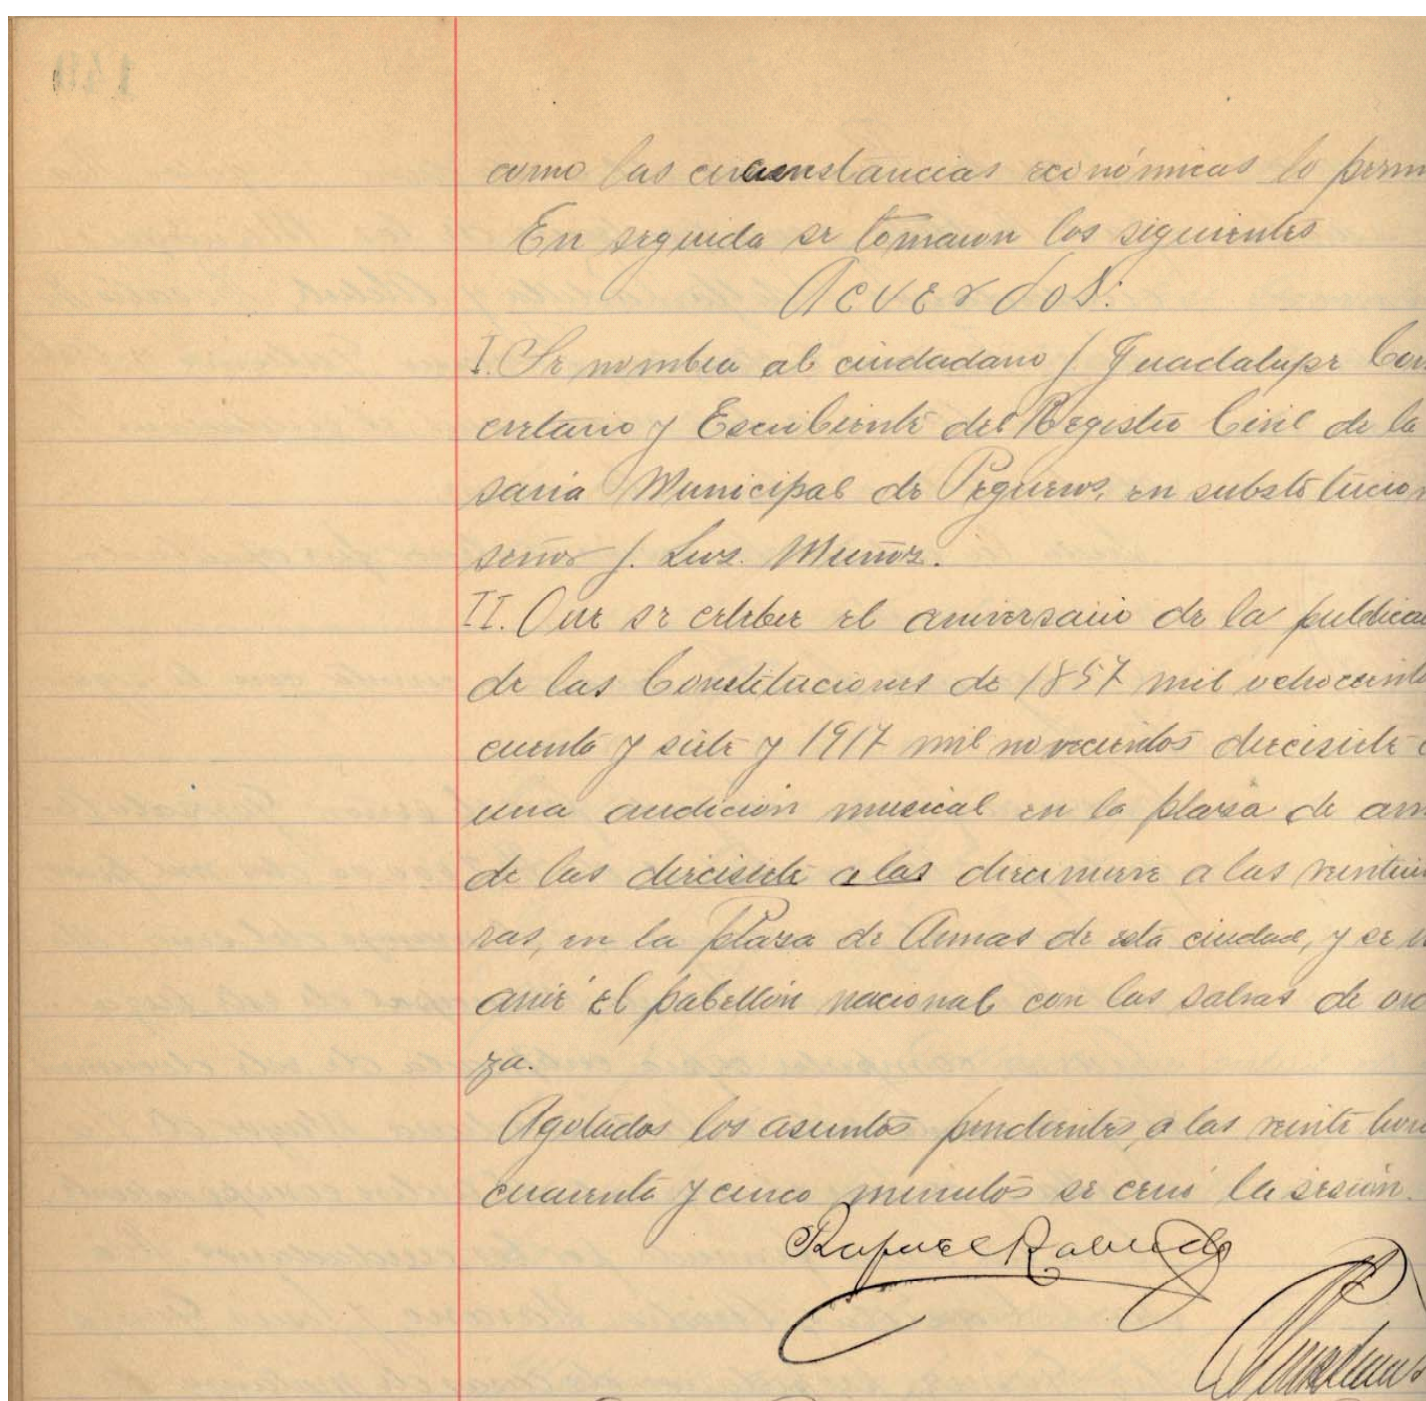 como las circunstancias económicas lo perm
En seguida se tomaron los siguientes
Acuerdos:
I. Se nombra al ciudadano J. Guadalupe
cretario y Escribiente del Registro Civil de la
saria Municipal de Pegueros, en substitucion
señor J. Luz. Muñoz.
II. Que se celebre el aniversario de la publicac
de las Constituciones de 1857 mil ochociento
cuenta y siete y 1917 mil novecientos diecisiete
una audición musical en la plaza de arm
de las diecisiete a las diecinueve a las veintiun
ras, en la plaza de Armas de esta ciudad, y se
el pabellón nacional con las salvas de
za.
Agotados los asuntos pendientes, a las veinte hora
cuarenta y cinco minutos se cerró la sesión.
Rafael